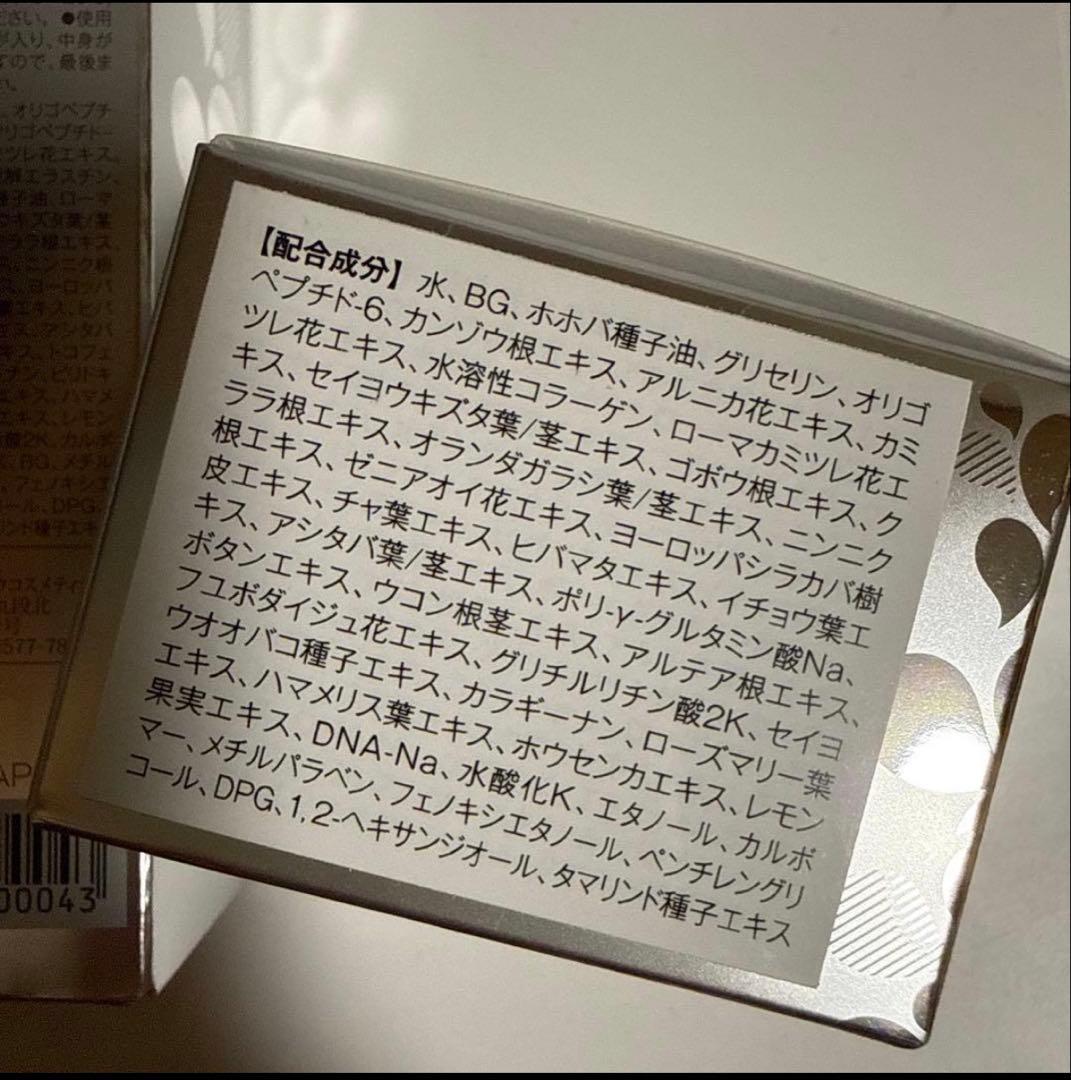 ださい。●使用
が入り、中身が
すので、最後ま
い。
、オリゴペプチ
オリゴペプチド-
ミツレ花エキス、
解エラスチン、
種子油、ローマ
ウキズタ葉/茎
ララ根エキス、
ニンニク根
ス、ヨーロッパ
エキス、ヒバ
ス、アシタバ
キス、トコフェ
ナン、ピリドキ
エキス、ハマメ
エキス、レモン
酸2K、カルボ
、BG、メチル
、フェノキシエ
ール、DPG、
リンド種子エキ
コスメティ
九段北
号
577-78
AP
00043
【配合成分】水、BG、ホホバ種子油、グリセリン、オリゴ
ペプチド-6、カンゾウ根エキス、アルニカ花エキス、カミ
ツレ花エキス、水溶性コラーゲン、ローマカミツレ花エ
キス、セイヨウキズタ葉/茎エキス、ゴボウ根エキス、ク
ララ根エキス、オランダガラシ葉/茎エキス、ニンニク
根エキス、ゼニアオイ花エキス、ヨーロッパシラカバ樹
皮エキス、チャ葉エキス、ヒバマタエキス、イチョウ葉エ
キス、アシタバ葉/茎エキス、ポリ-γ-グルタミン酸Na、
ボタンエキス、ウコン根茎エキス、アルテア根エキス、
フユボダイジュ花エキス、グリチルリチン酸2K、セイヨ
ウオオバコ種子エキス、カラギーナン、ローズマリー葉
エキス、ハマメリス葉エキス、ホウセンカエキス、レモン
果実エキス、DNA-Na、水酸化K、エタノール、カルボ
マー、メチルパラベン、フェノキシエタノール、ペンチレングリ
コール、DPG、1,2-ヘキサンジオール、タマリンド種子エキス